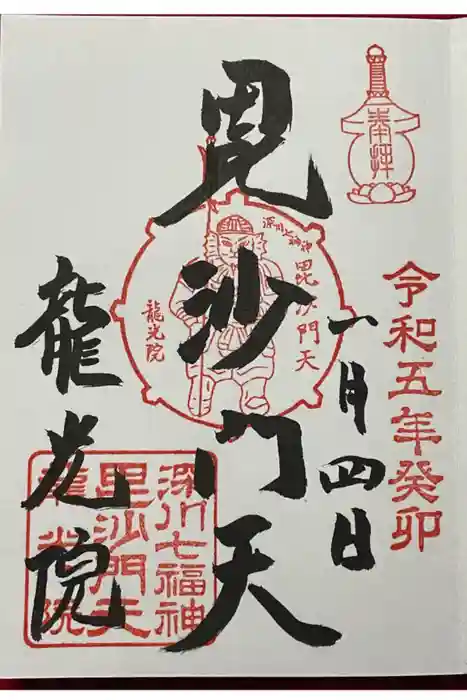 奉拝
令和五年癸卯
一月四日
毘沙門天
深川七福神
毘沙門天
龍光院
龍光院
深川七福神
毘沙門天
龍光院